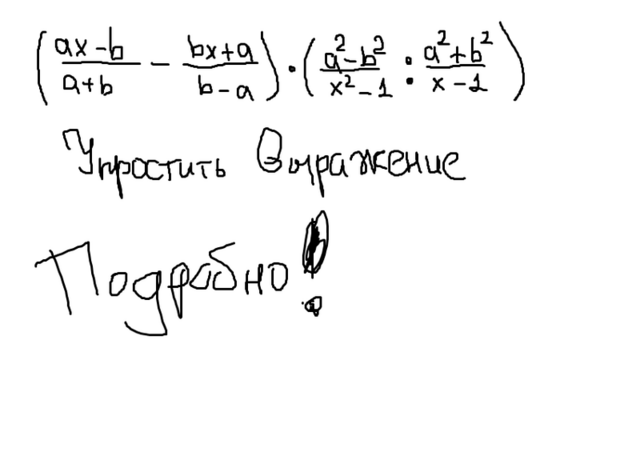 ((ax-b)/(a+b) - (bx+a)/(b-a)) · ((a²-b²)/(x²-1) : (a²+b²)/(x-1))
Упростить Выражение
Подробно!